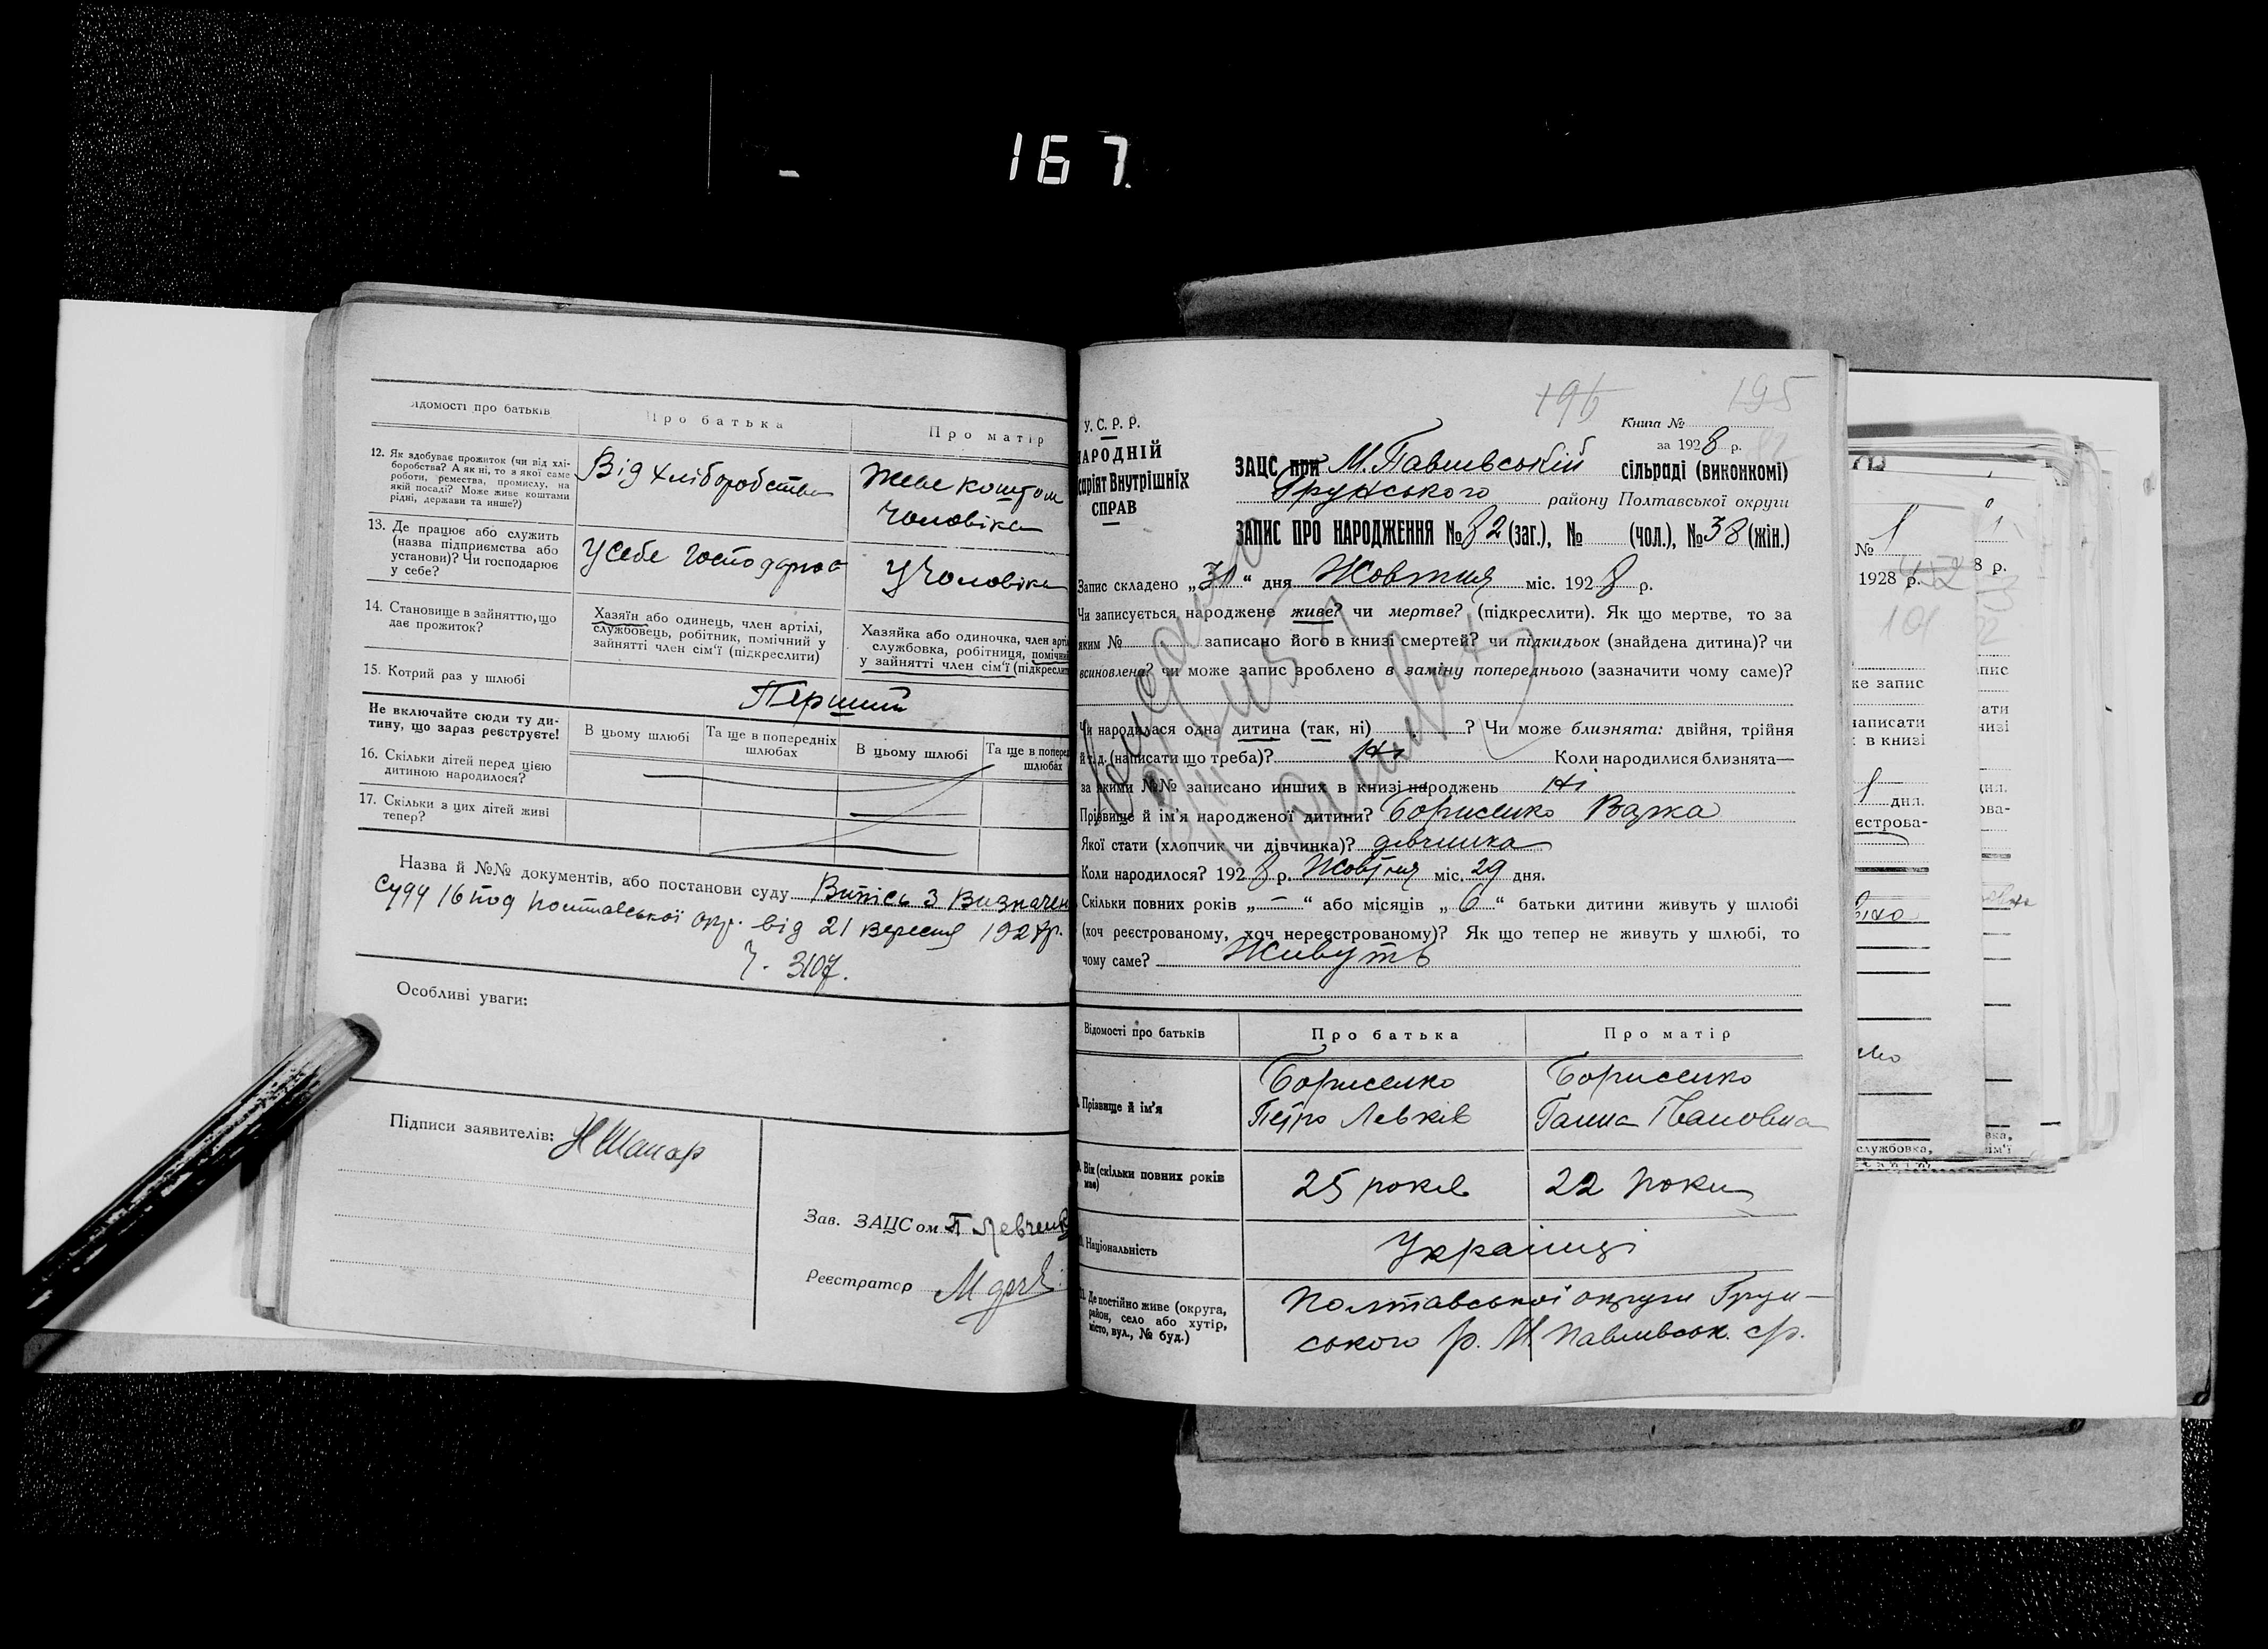 167.
Відомості про батьків
Про батька
Про матір
12. Як здобуває прожиток (чи від хлі-
боробства? А як ні, то з якої саме
роботи, ремества, промислу, на
якій посаді? Може живе коштами
рідні, держави та инше?)
Від хліборобства
Живе коштом
чоловіка
13. Де працює або служить
(назва підприємства або
установи)? Чи господарює
у себе?
У себе господарює
У чоловіка
14. Становище в зайняттю, що
дає прожиток?
Хазяїн або одинець, член артілі,
службовець, робітник, помічний у
зайнятті член сім'ї (підкреслити)
Хазяйка або одиночка, член артіл
службовка, робітниця, помічни
у зайнятті член сім'ї (підкреслит
15. Котрий раз у шлюбі
Перший
Не включайте сюди ту ди-
тину, що зараз реєструєте!
В цьому шлюбі
Та ще в попередніх
шлюбах
В цьому шлюбі
Та ще в поперед
шлюбах
16. Скільки дітей перед цією
дитиною народилося?
17. Скільки з цих дітей живі
тепер?
Назва й №№ документів, або постанови суду Випісь з Визначен
Суду 16 под Полтавської окр. від 21 вересня 1928р.
Ч. 3107.
Особливі уваги:
Підписи заявителів: Н Шапар
Зав. ЗАЦСом П Левченко
Реєстратор
195
195
У. С. Р. Р.
НАРОДНІЙ
Комісаріят Внутрішніх
СПРАВ
Книга №
за 1928 р.
ЗАЦС при М. Павлівській сільраді (виконкомі)
Грунського району Полтавської округи
ЗАПИС ПРО НАРОДЖЕННЯ № 82 (заг.), № (чол.), № 38 (жін.)
Запис складено „31“ дня Жовтня міс. 1928 р.
Чи записується народжене живе? чи мертве? (підкреслити). Як що мертве, то за
яким № записано його в книзі смертей? чи підкидьок (знайдена дитина)? чи
всиновлена? чи може запис зроблено в заміну попереднього (зазначити чому саме)?
Чи народилася одна дитина (так, ні) ? Чи може близнята: двійня, трійня
й т. д. (написати що треба)? Ні Коли народилися близнята—
за якими №№ записано инших в книзі народжень Ні
Прізвище й ім'я народженої дитини? Борисенко Варка
Якої стати (хлопчик чи дівчинка)? дівчинка
Коли народилося? 1928 р. Жовтня міс. 29 дня.
Скільки повних років „—“ або місяців „6“ батьки дитини живуть у шлюбі
(хоч реєстрованому, хоч нереєстрованому)? Як що тепер не живуть у шлюбі, то
чому саме? Живуть
Відомості про батьків
Про батька
Про матір
Прізвище й ім'я
Борисенко
Петро Левків
Борисенко
Ганна Івановна
Вік (скільки повних років
має)
25 років
22 роки
Національність
Українці
Де постійно живе (округа,
район, село або хутір,
місто, вул., № буд.)
Полтавської округи Грун-
ського р. М. Павлівськ. с/р.
№ 1
1928 р.
8 р.
101
же запис
написати
в книзі
дня.
єстрова-
службовка,